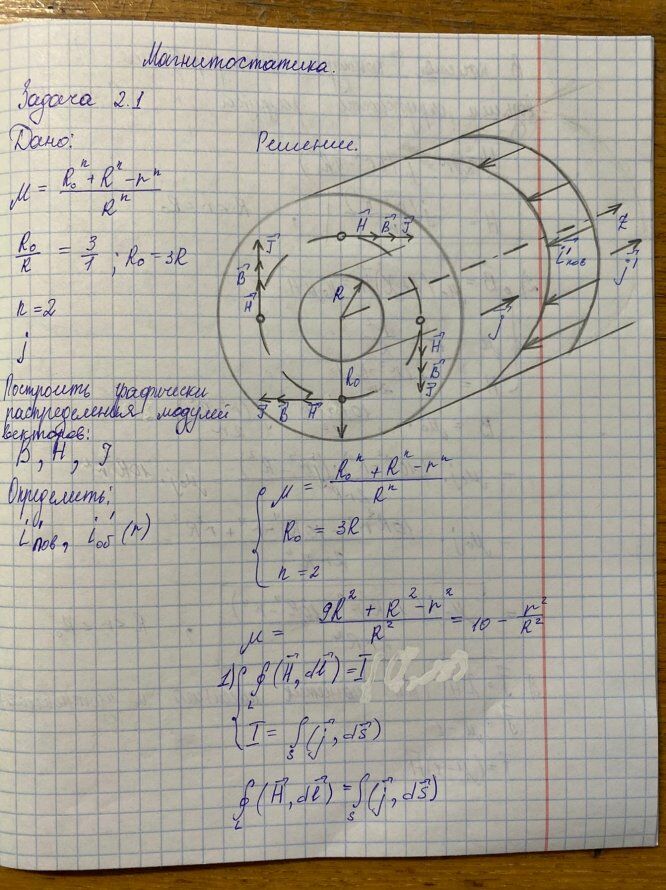 Магнитостатика.
Задача 2.1
Дано:
Решение.
μ = (R₀ⁿ + Rⁿ - rⁿ) / Rⁿ
R₀/R = 3/1 ; R₀ = 3R
n = 2
j
Построить графически
распределения модулей
векторов:
B, H, J
Определить:
i'пов, i'об (r)
H⃗ B⃗ J⃗
J⃗
B⃗
H⃗
R
R₀
H⃗
B⃗
J⃗
J⃗ B⃗ H⃗
j⃗
i'пов
z
j⃗
μ = (R₀ⁿ + Rⁿ - rⁿ) / Rⁿ
R₀ = 3R
n = 2
μ = (9R² + R² - r²) / R² = 10 - r²/R²
1) ∮L (H⃗, dl⃗) = I
I = ∫S (j⃗, ds⃗)
∮L (H⃗, dl⃗) = ∫S (j⃗, ds⃗)